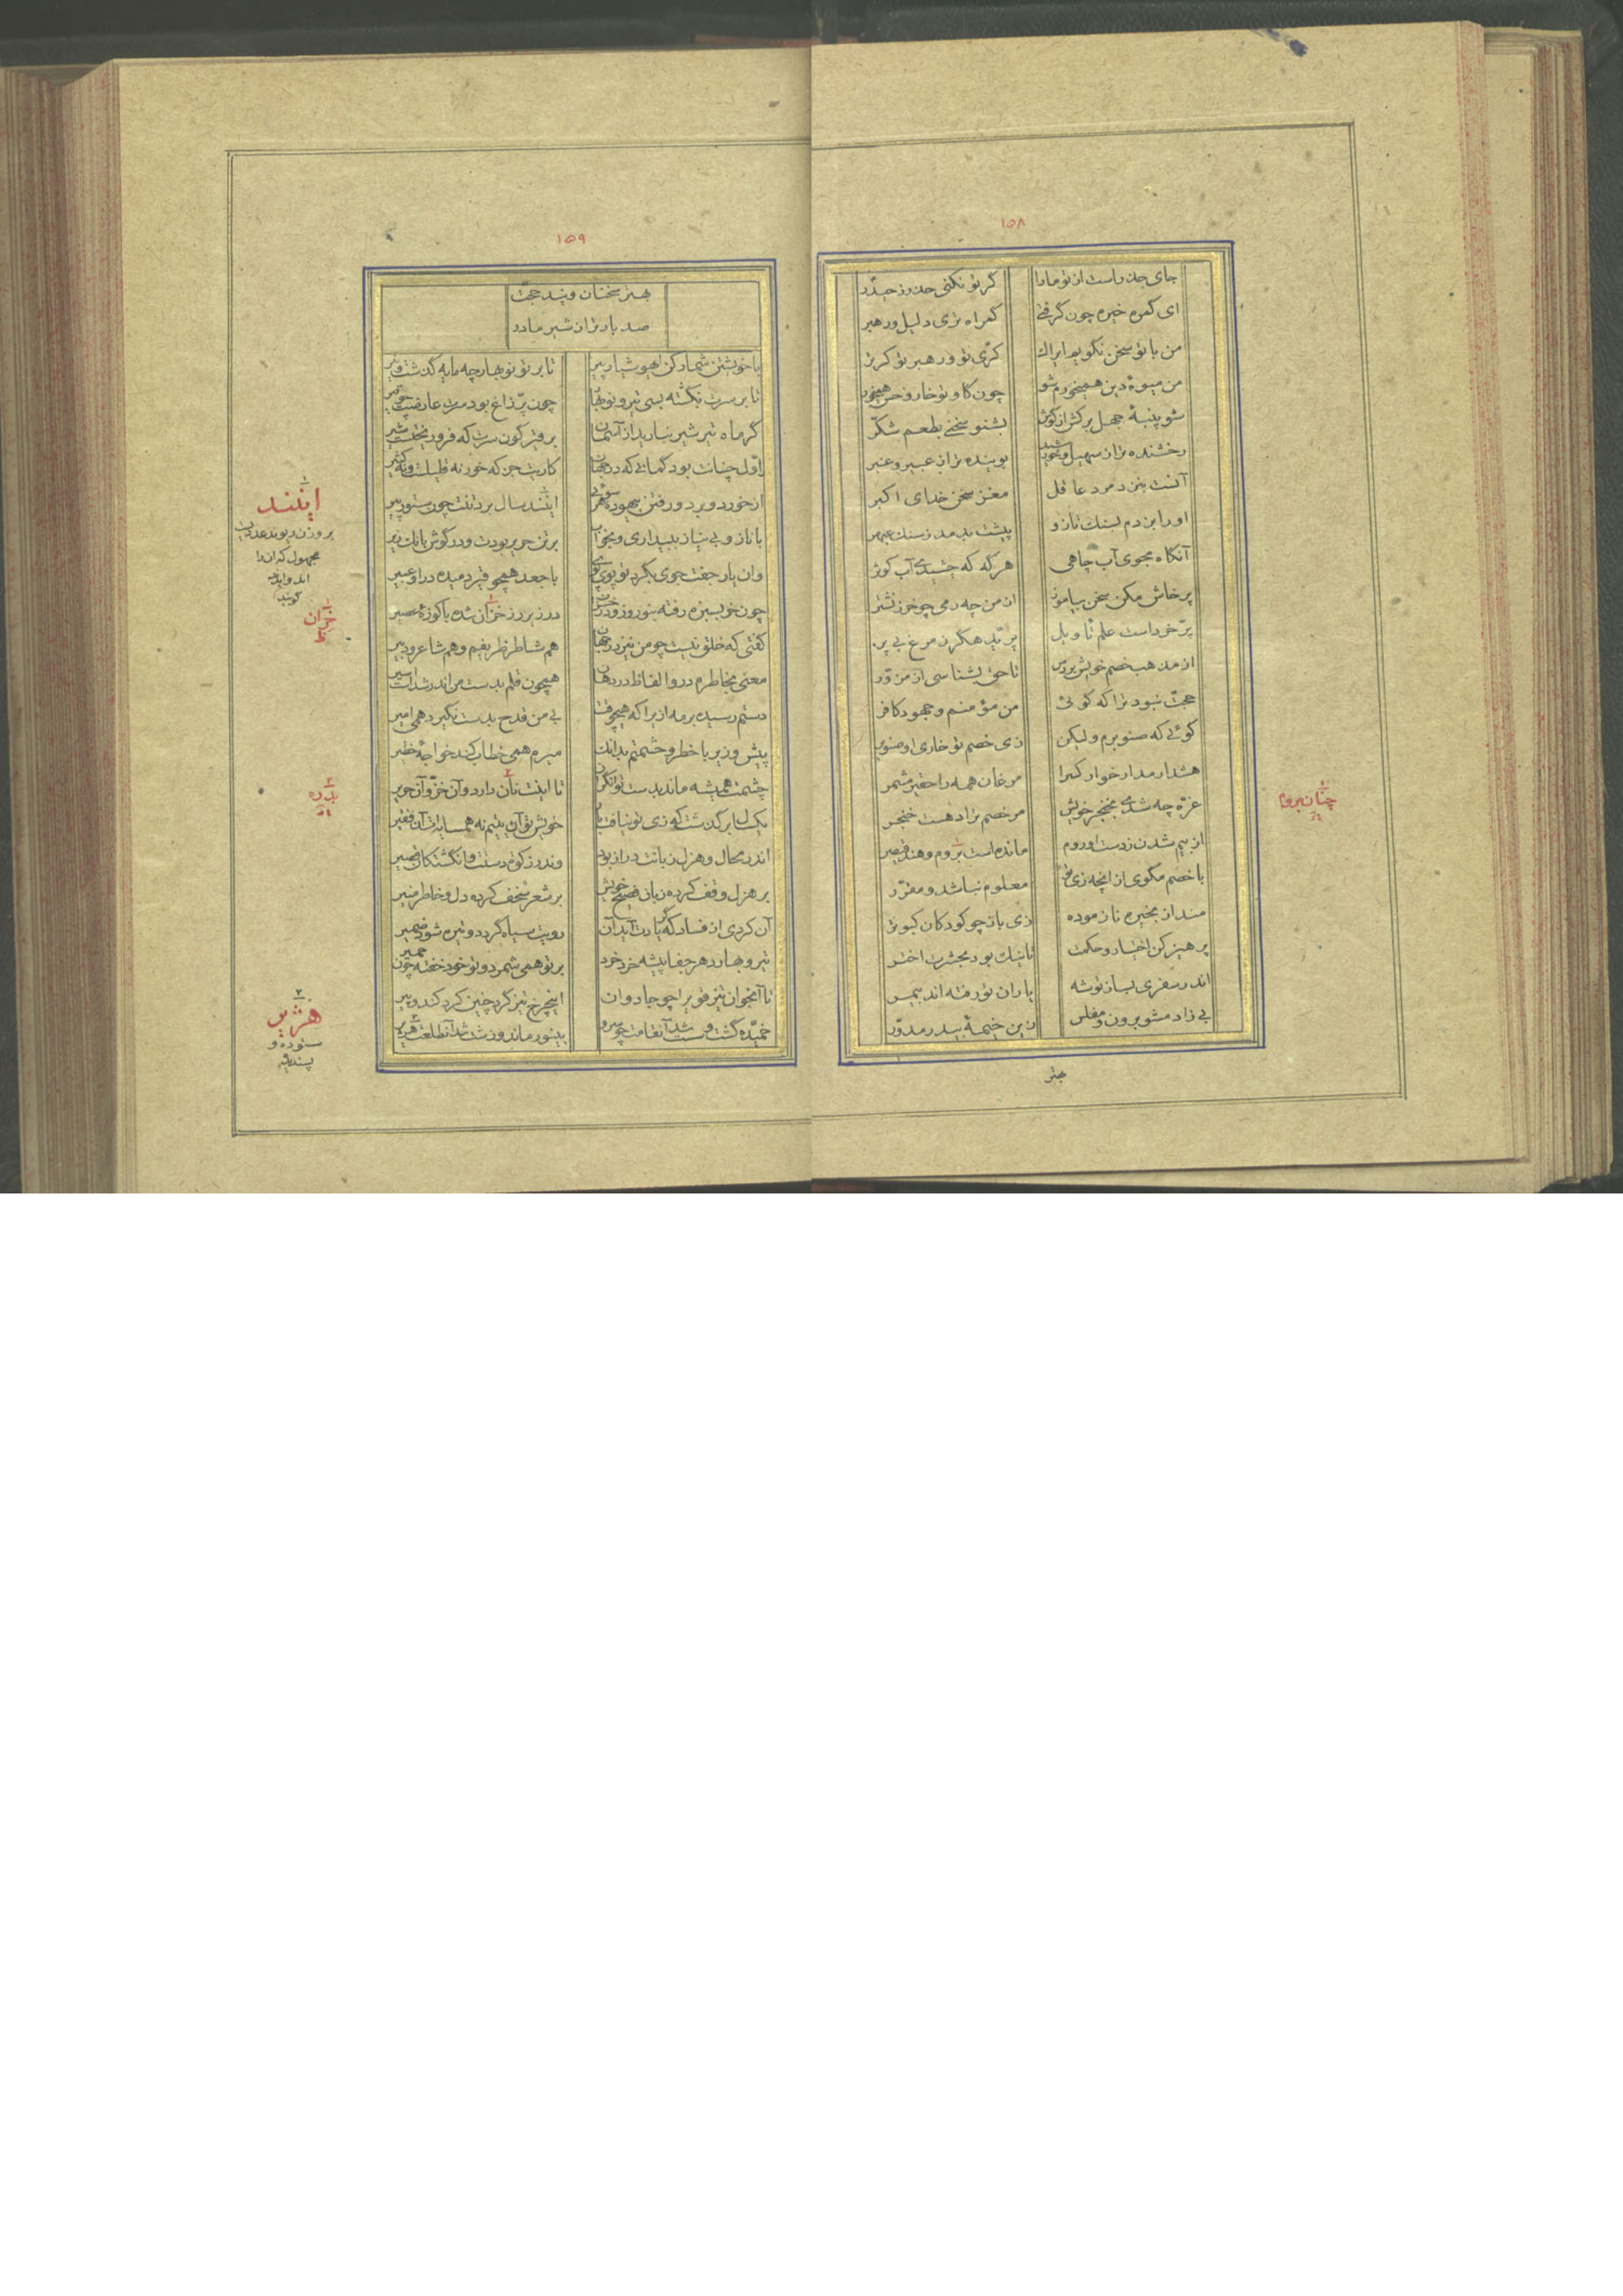 ۱۵۸
جای حذر است از تو ما را گر تو نکنی حذر ز حیدر
ای گمره خیره چون گرفتی گمراه تری دلیل و رهبر
من با تو سخن نگویم ایراک کرّی تو و رهبر تو کرتر
من میوهٔ دین همیخورم شو چون گاو تو خار و خس همیخور
شو پنبهٔ جهل برکش از گوش بشنو سخنی بطعم شکّر
رخشنده‌تر از سهیل و خورشید بوینده‌تر از عبیر و عنبر
آنست بنزد مرد عاقل مغز سخن خدای اکبر
او را بزدم بسنک تا زو پیشت بدمد ز سنک عبهر
آنگاه مجوی آب چاهی هرگه که چشیدی آب کوثر
پرخاش مکن سخن بیاموز از من چه رمی چو خر ز نشتر
پرّ خرد است علم تاویل پرّید هگرز مرغ بی پر
از مذهب خصم خویش بررس تا حق بشناسی از مزوّر
حجّت نبود ترا که گوئی من مؤمنم و جهود کافر
گوئی که صنوبرم و لیکن زی خصم تو خاری او صنوبر
هشدار مدار خوار کس را مرغان همه را حقیر مشمر
غرّه چه شدی بخنجر خویش مر خصم ترا دهست خنجر
از بیم شدن ز دست او روم مانده است بروم و هند قیصر
با خصم مگوی از انچه زی تو معلوم نباشد و مقرّر
منداز بخیره نازموده زی باز چو کودکان کبوتر
پرهیز کن اختیار و حکمت تا نیک بود بحشرت اختر
اندر سفری بساز توشه یاران تو رفته‌اند بی مر
بی زاد مشو برون و مفلس زین خیمهٔ بیدر مدوّر
چنان بروم
بهتر
۱۵۹
بهتر سخنان و پند حجّت
صد بار تر از شیر مادر
با خویشتن شمار کن ای هوشیار پیر تا بر تو نوبهار چه مایه گذشت و تیر
تا بر سرت نگشته بسی تیر و نوبهار چون پرّ زاغ بود سرت عارضت چو قیر
گر ماه تیر شیر نبارید از آسمان بر قیرگون سرت که فرو ریختست شیر
اوّل چنانت بود گمانی که در جهان کاریت جز که خور نه قلیلست و نه کثیر
از خورد و برد و رفتن بیهوده هر سوئی ایند سال بر دتنت چون ستور پیر
با ناز و بی نیاز ببیداری و بخواب بر تن حریر بودت و در گوش بانک زیر
وان یار جفت جوی بگرد تو پوی پوی با جعد همچو قیر دمیده در او عبیر
چون خر بسبزه رفته بنوروز و در خزان در زیر رز خزان شده با کوزهٔ عصیر
گفتی که خلق نیست چو من نیز در جهان هم شاطر ظریفم و هم شاعر و دبیر
معنی بخاطرم در و الفاظ در دهان همچون قلم بدست من اندر شد است اسیر
دستم رسیده بر مه ازیرا که هیچوقت بی من قدح بدست نگیرد همی امیر
پیش وزیر با خطر و حشمتم بدانک میرم همی خطاب کند خواجهٔ خطیر
چشمت همیشه مانده بدست توانگران تا اینت نان دارد و آن خزّ و آن حریر
یک سال بر گذشت که زی تو نیافت بار خویش تو آن یتیم نه همسایه‌ات آن فقیر
اندر محال و هزل زبانت دراز بود وندر زکوه دستت و انگشتکان قصیر
بر هزل وقف کرده زبان فصیح خویش بر شعر سخف کرده دل و خاطر منیر
آن کردی از فساد که گر یادت آید آن رویت سیاه گردد و تیره شود ضمیر
تیر و بهار دهر جفا پیشه خرد خرد بر تو همی شمرد و تو خود خفته چون حمیر
تا آنجوان تیز قوی را چو جادوان این چرخ تیز گرد چنین کرد کند و پیر
خمّیده گشت و سست شد آنقامت چو سرو بی نور ماند و زشت شد آنطلعت هژیر
ایند
بر وزن ریوند عددیست
مجهول که آنرا
اند و ایدند
گویند
خزان
ظ
هژیر
ستوده و
پسندیده